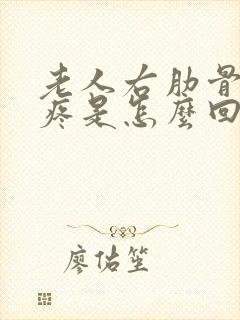 老人右肋骨
疼是怎麼回
廖佑笙